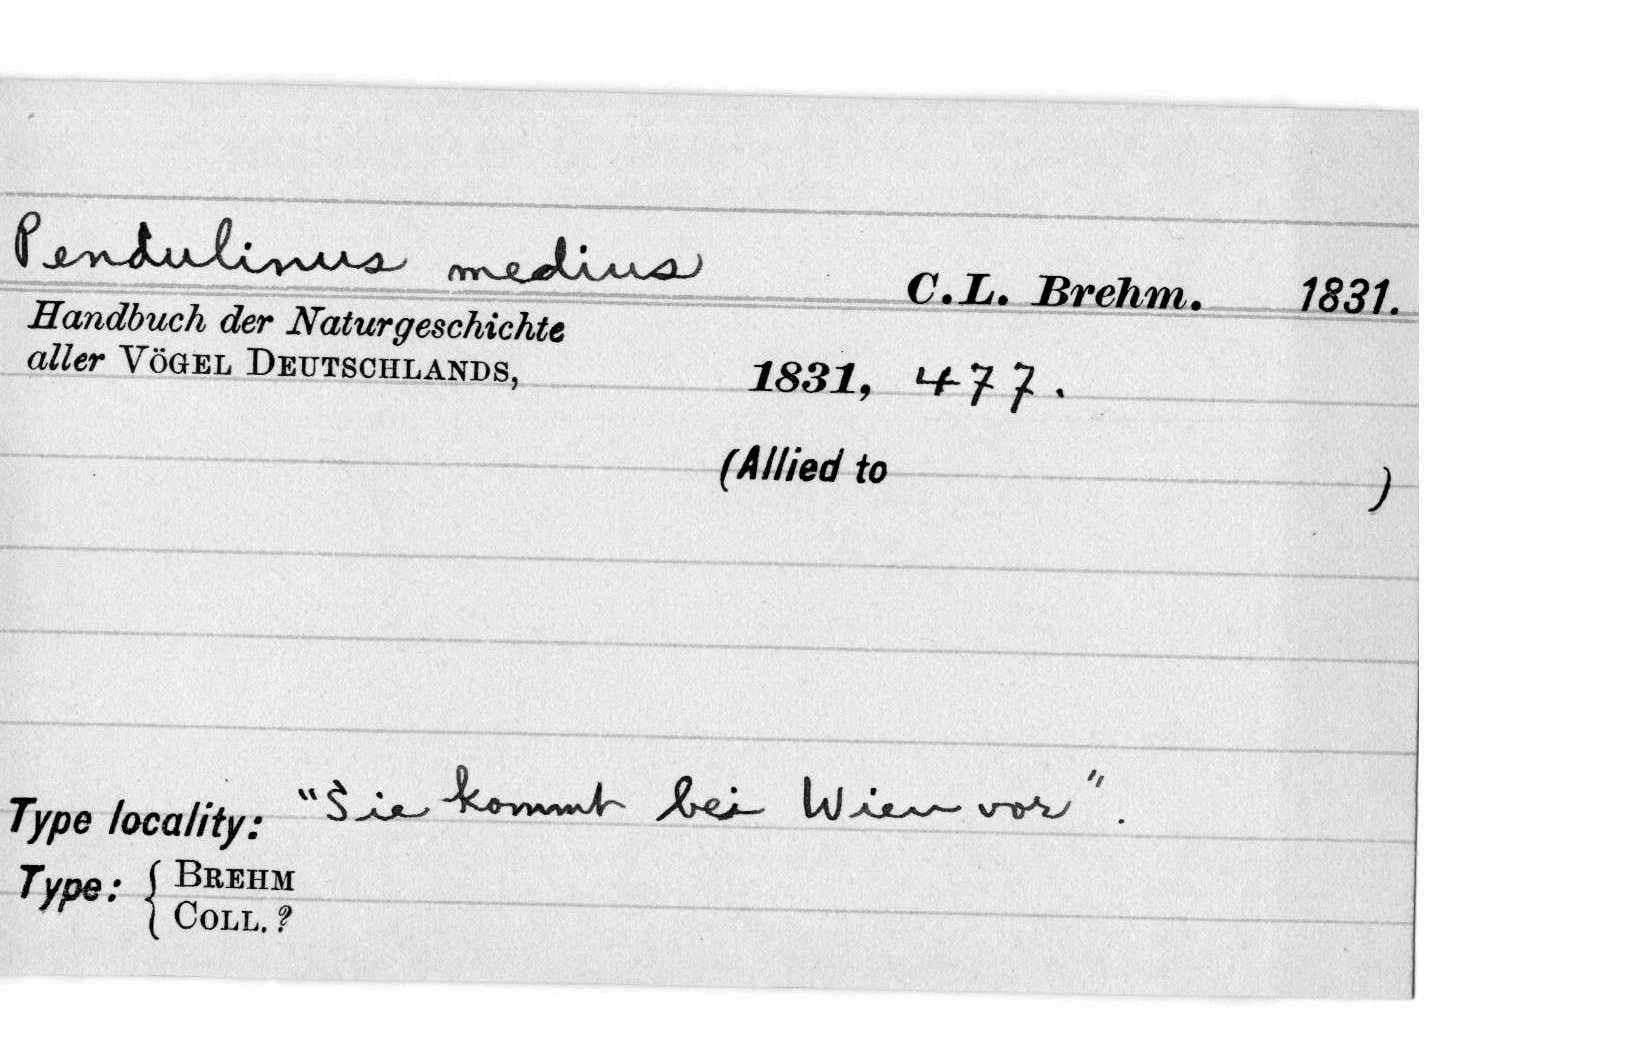 Pendulinus medius C.L. Brehm. 1831.
Handbuch der Naturgeschichte
aller VÖGEL DEUTSCHLANDS, 1831, 477.
(Allied to )
Type locality: "Sie kommt bei Wien vor".
Type: { BREHM
COLL. ?